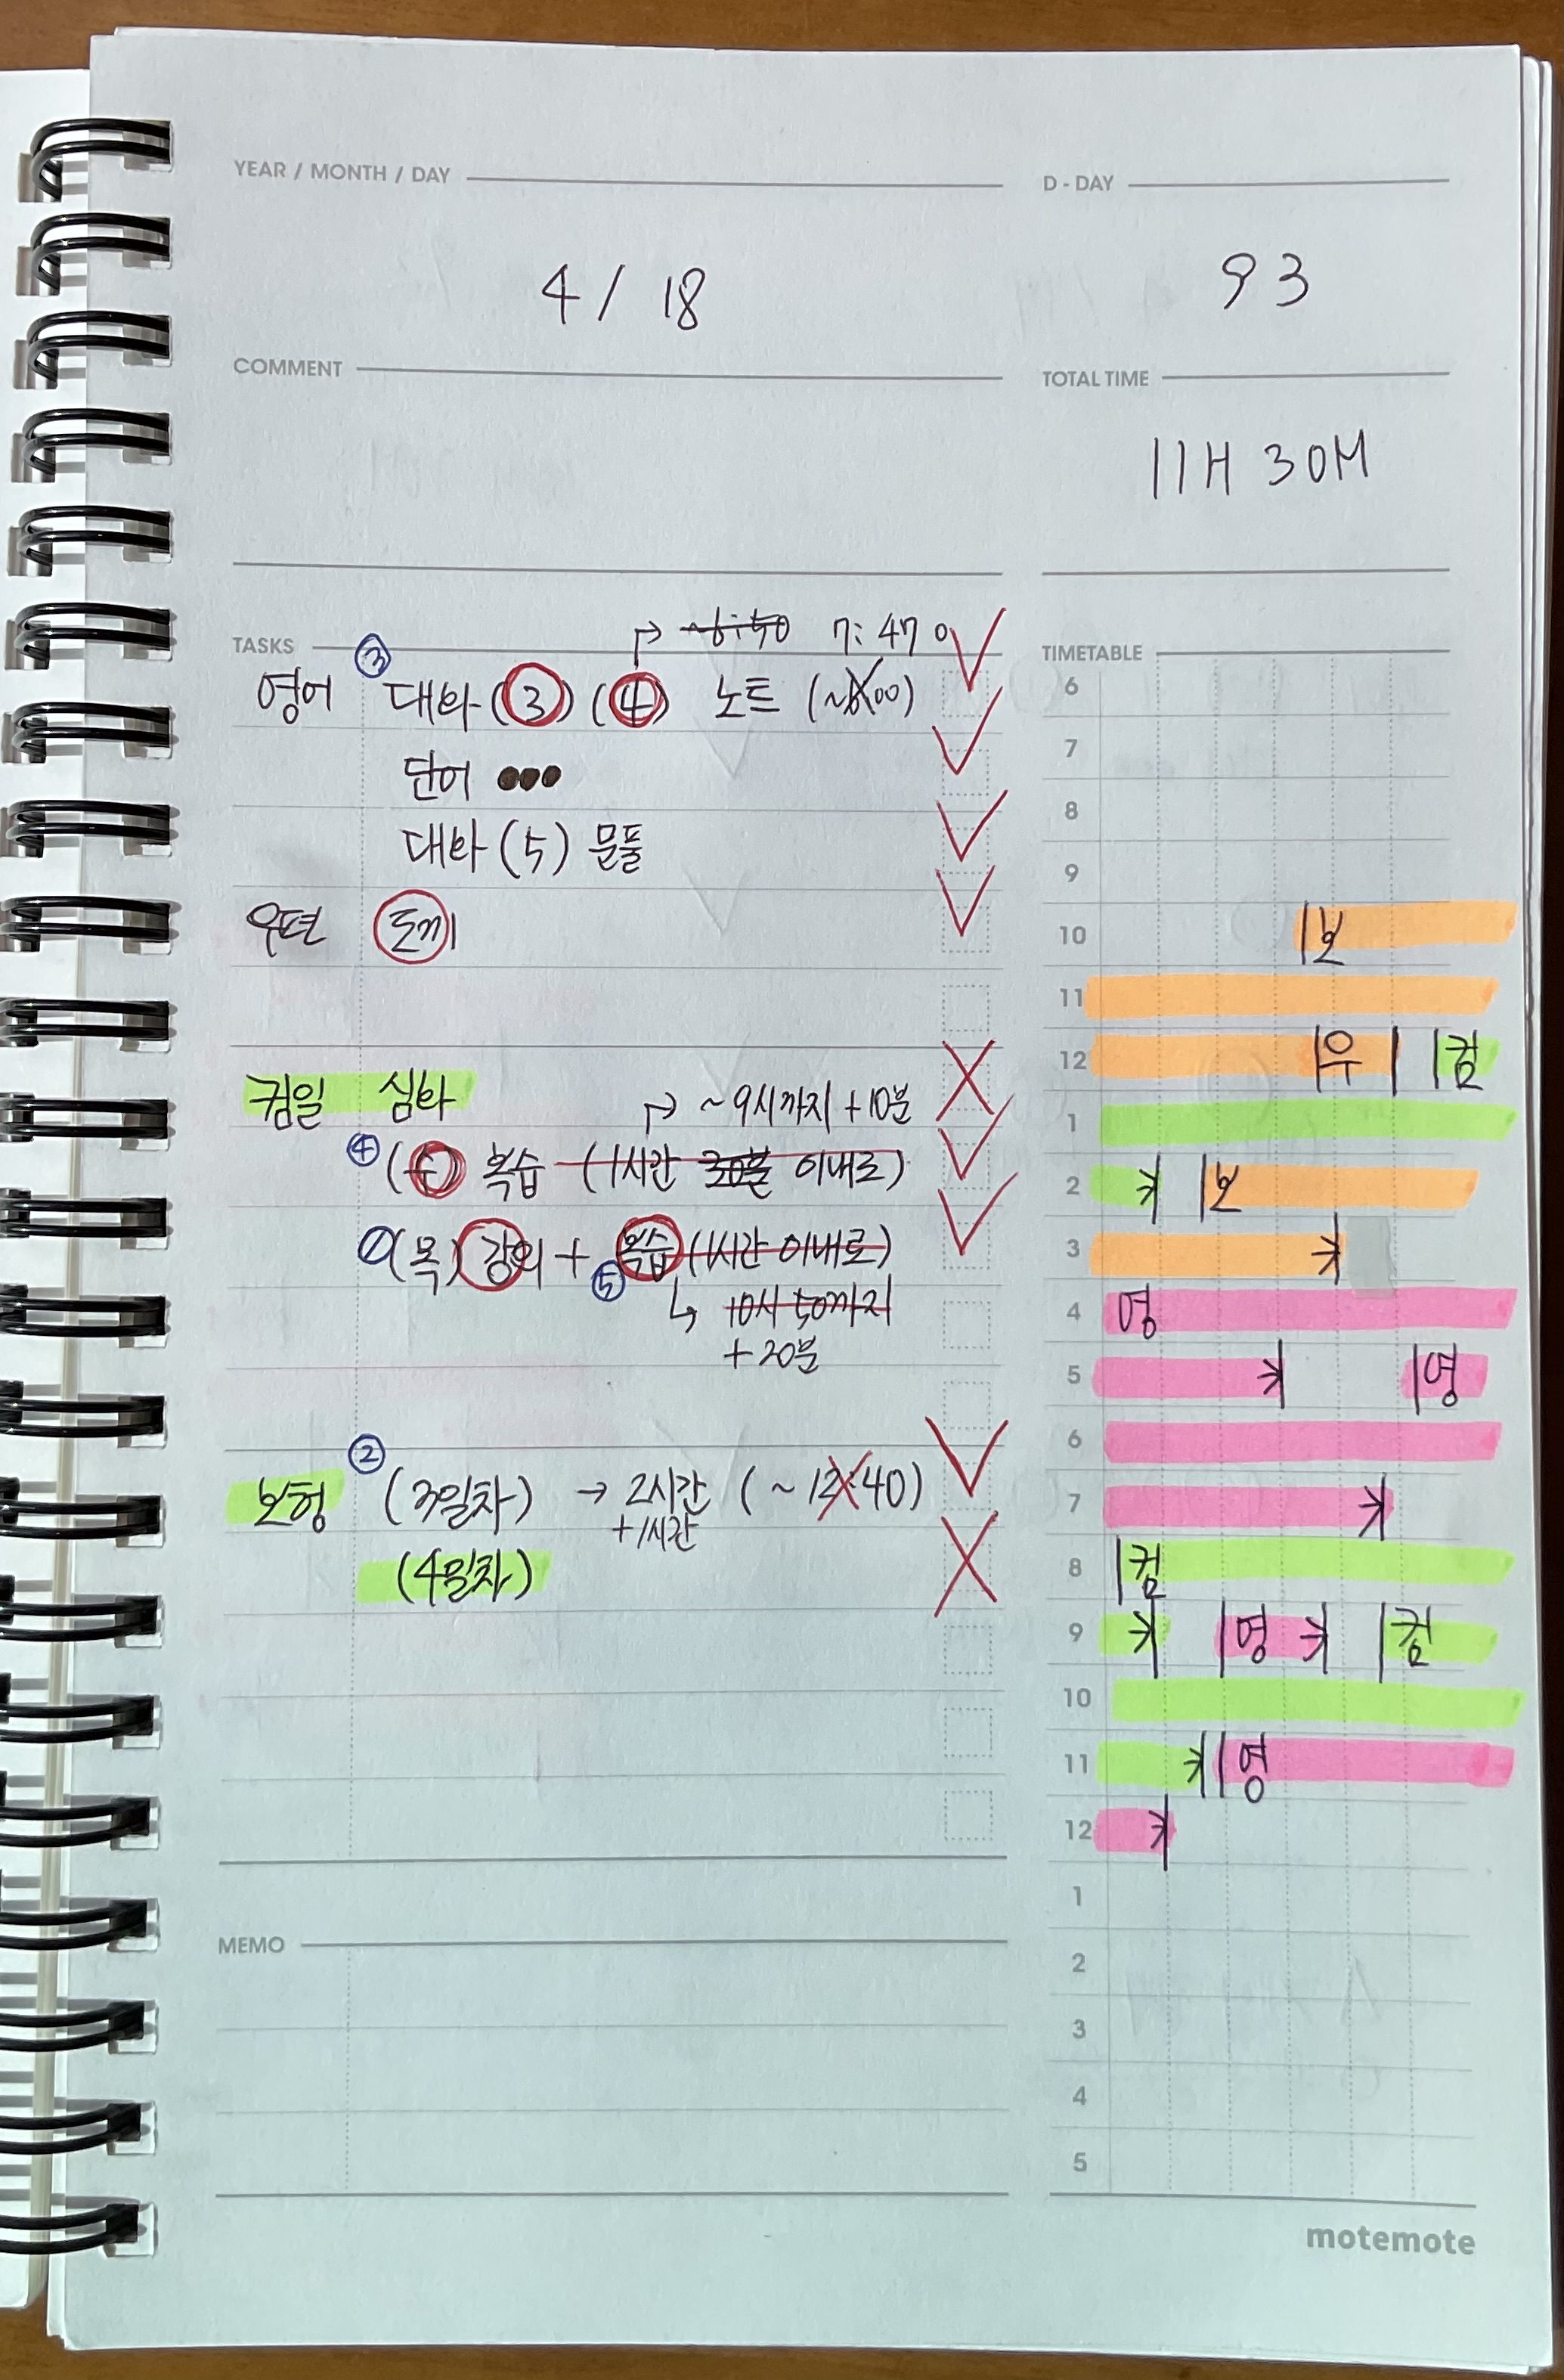 YEAR / MONTH / DAY
4 / 18
D - DAY
93
COMMENT
TOTAL TIME
11H 30M
TASKS
~6:50 7:47
③
영어 대화 (3) (4) 노트 (~8:00)
단어
대화 (5) 문풀
우편 토끼
컴일 심화
→ ~9시까지 +10분
④ (수) 복습 (1시간 30분 이내로)
① (목) 강의 + ⑤ 복습 (1시간 이내로)
↳ 10시 50까지
+20분
②
보험 (3일차) → 2시간 (~12:40)
+1시간
(4일차)
MEMO
TIMETABLE
6
7
8
9
10 보
11
12 우 컴
1
2 보
3
4 영
5 영
6
7
8 컴
9 영 컴
10
11 영
12
1
2
3
4
5
motemote